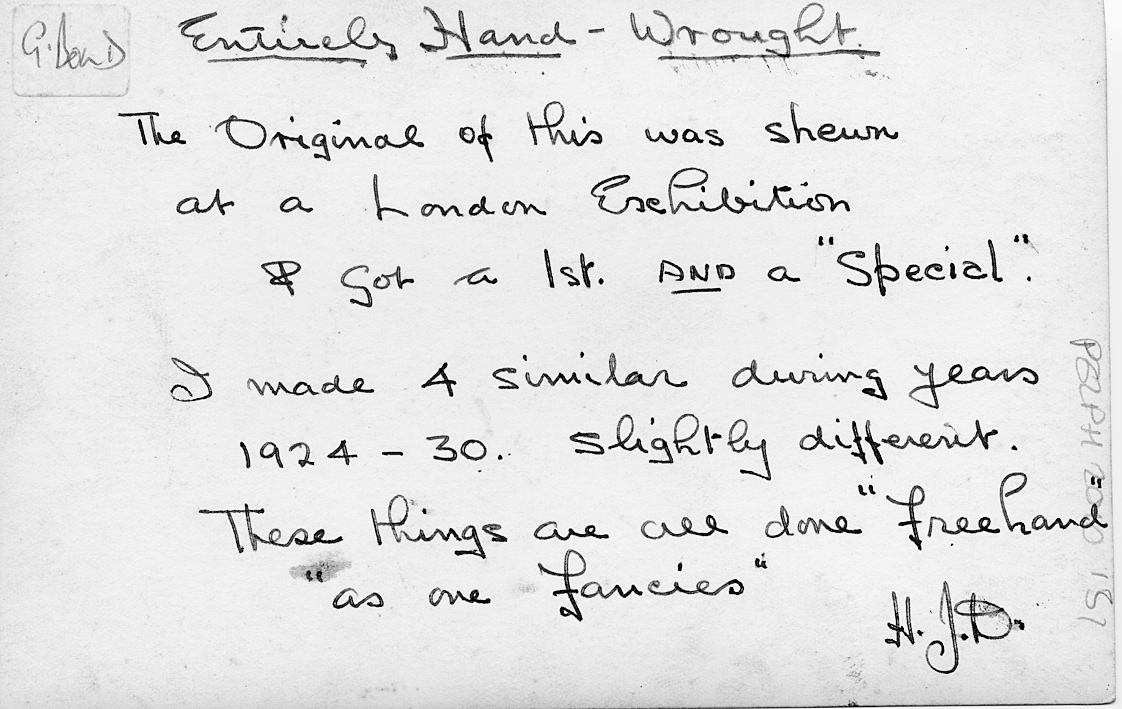 G. Bond
Entirely Hand-Wrought.
The Original of this was shewn
at a London Exhibition
& got a 1st. AND a "Special".
I made 4 similar during years
1924 - 30. Slightly different.
These things are all done "freehand"
"as one fancies"
H.J.D.